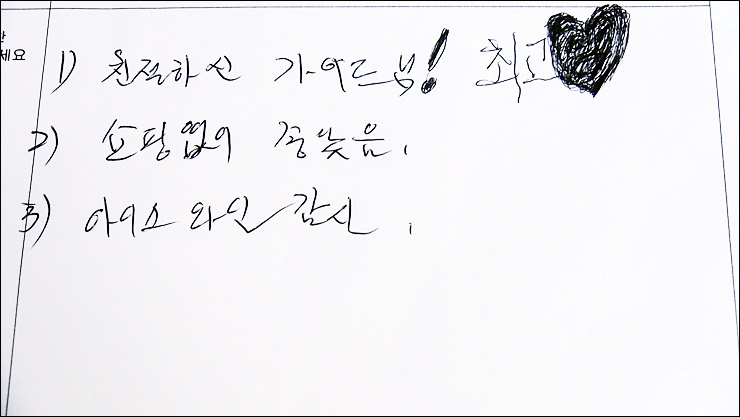 세요
1) 친절하신 가이드님! 최고
2) 쇼핑없어 좋았음.
3) 아이스 와인 감사.